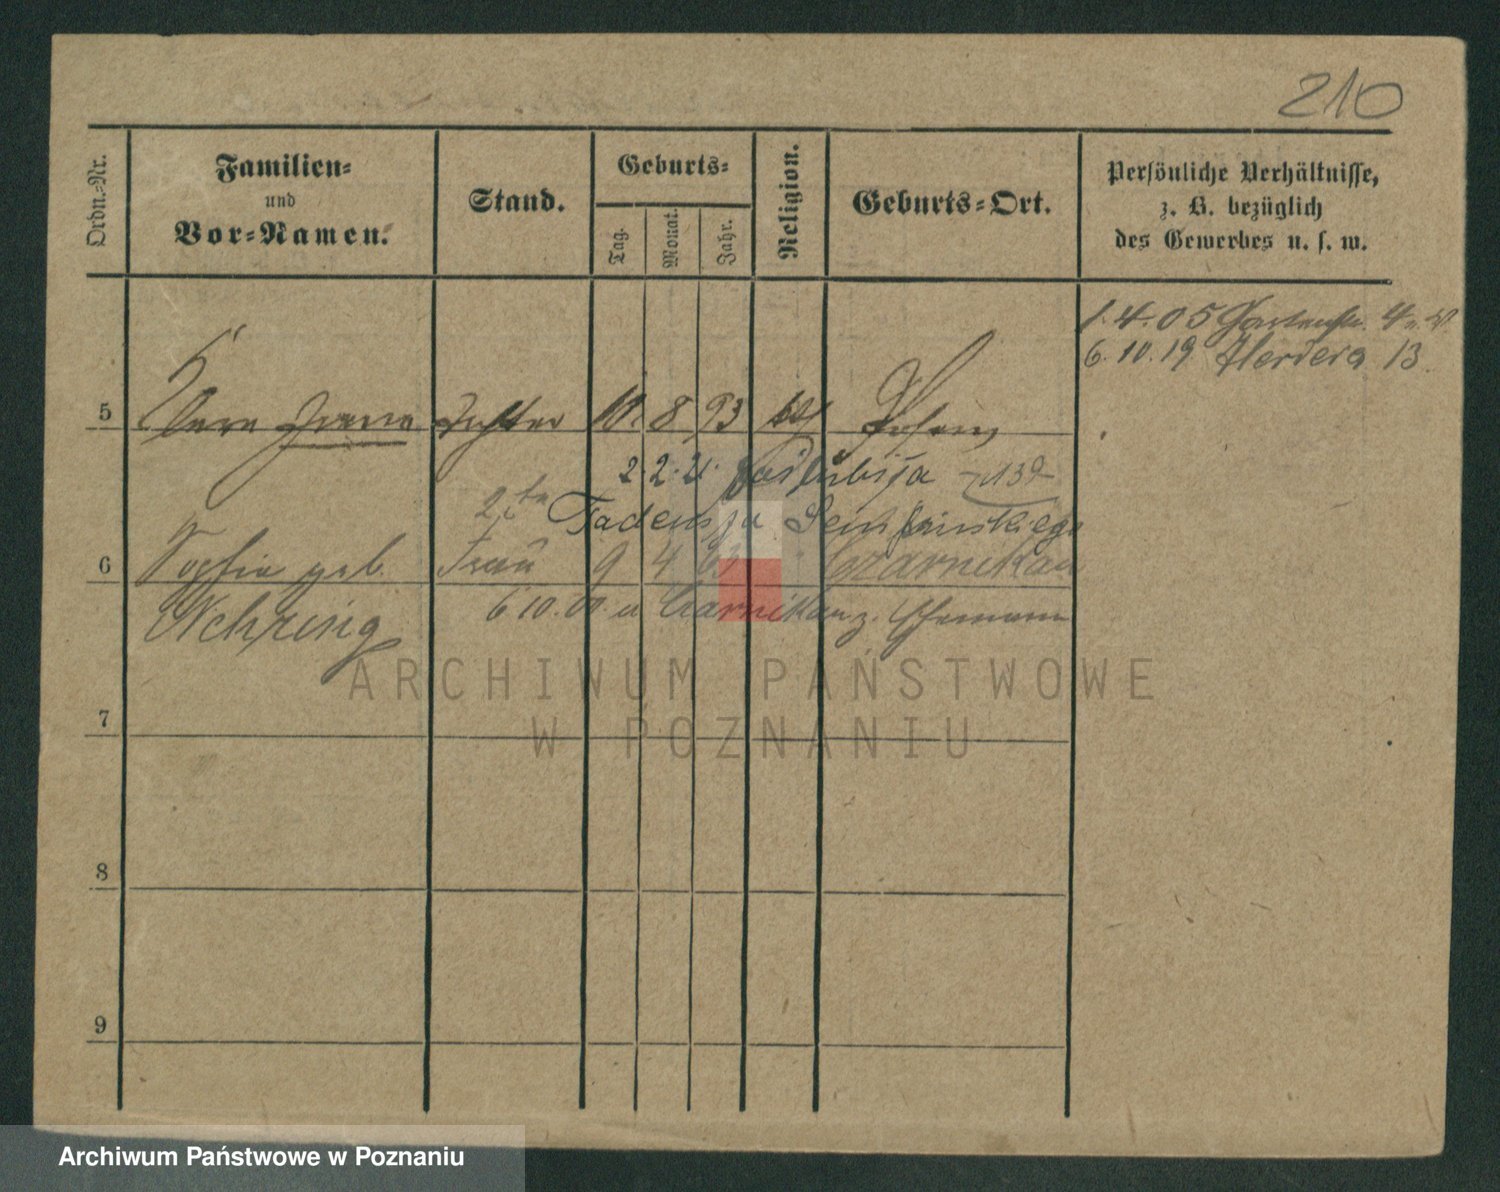 210
Ordn.-Nr.
Familien-
und
Vor-Namen.
Stand.
Geburts-
Tag.
Monat.
Jahr.
Religion.
Geburts-Ort.
Persönliche Verhältnisse,
z. B. bezüglich
des Gewerbes u. s. w.
1.4.05 Gartenstr. 4
6.10.19 Herdera 13
5 Irena Tochter 10. 8 93 Posen
2.2.21.
2te Tadeusza
6 Sophie geb. Frau 9 4 63 " Czarnikau
Nehring
6 10.00 u Czarnikau z. Ehemann
7
8
9
ARCHIWUM PAŃSTWOWE
W POZNANIU
Archiwum Państwowe w Poznaniu